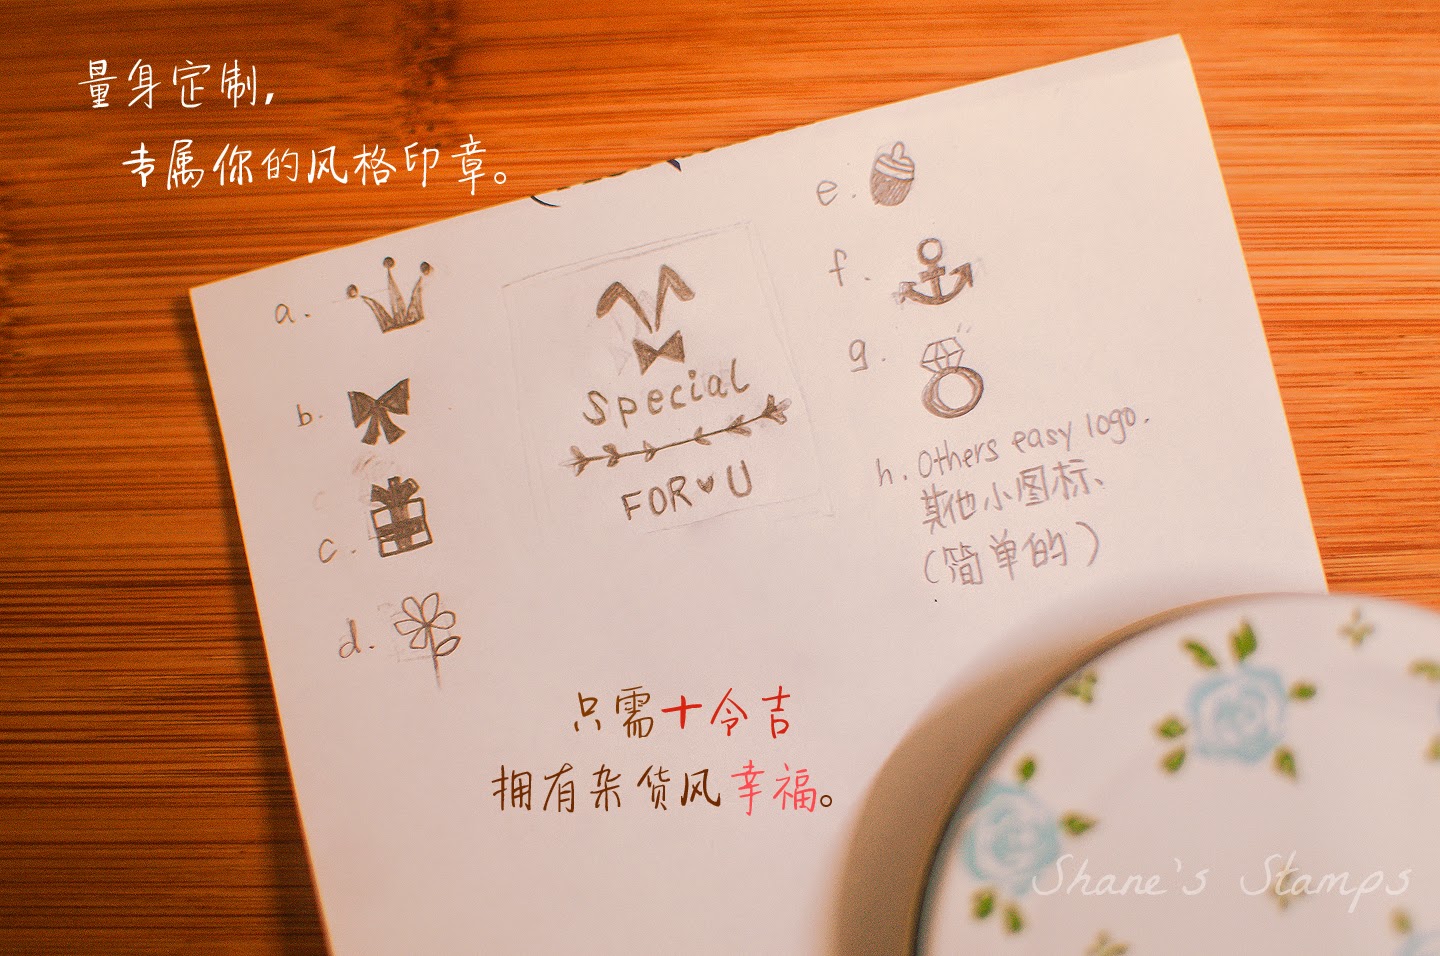 量身定制,
专属你的风格印章。
a.
b.
c.
d.
Special
FOR♥U
e.
f.
g.
h. Others easy logo.
其他小图标、
(简单的)
只需十令吉
拥有杂货风幸福。
Shane's Stamps